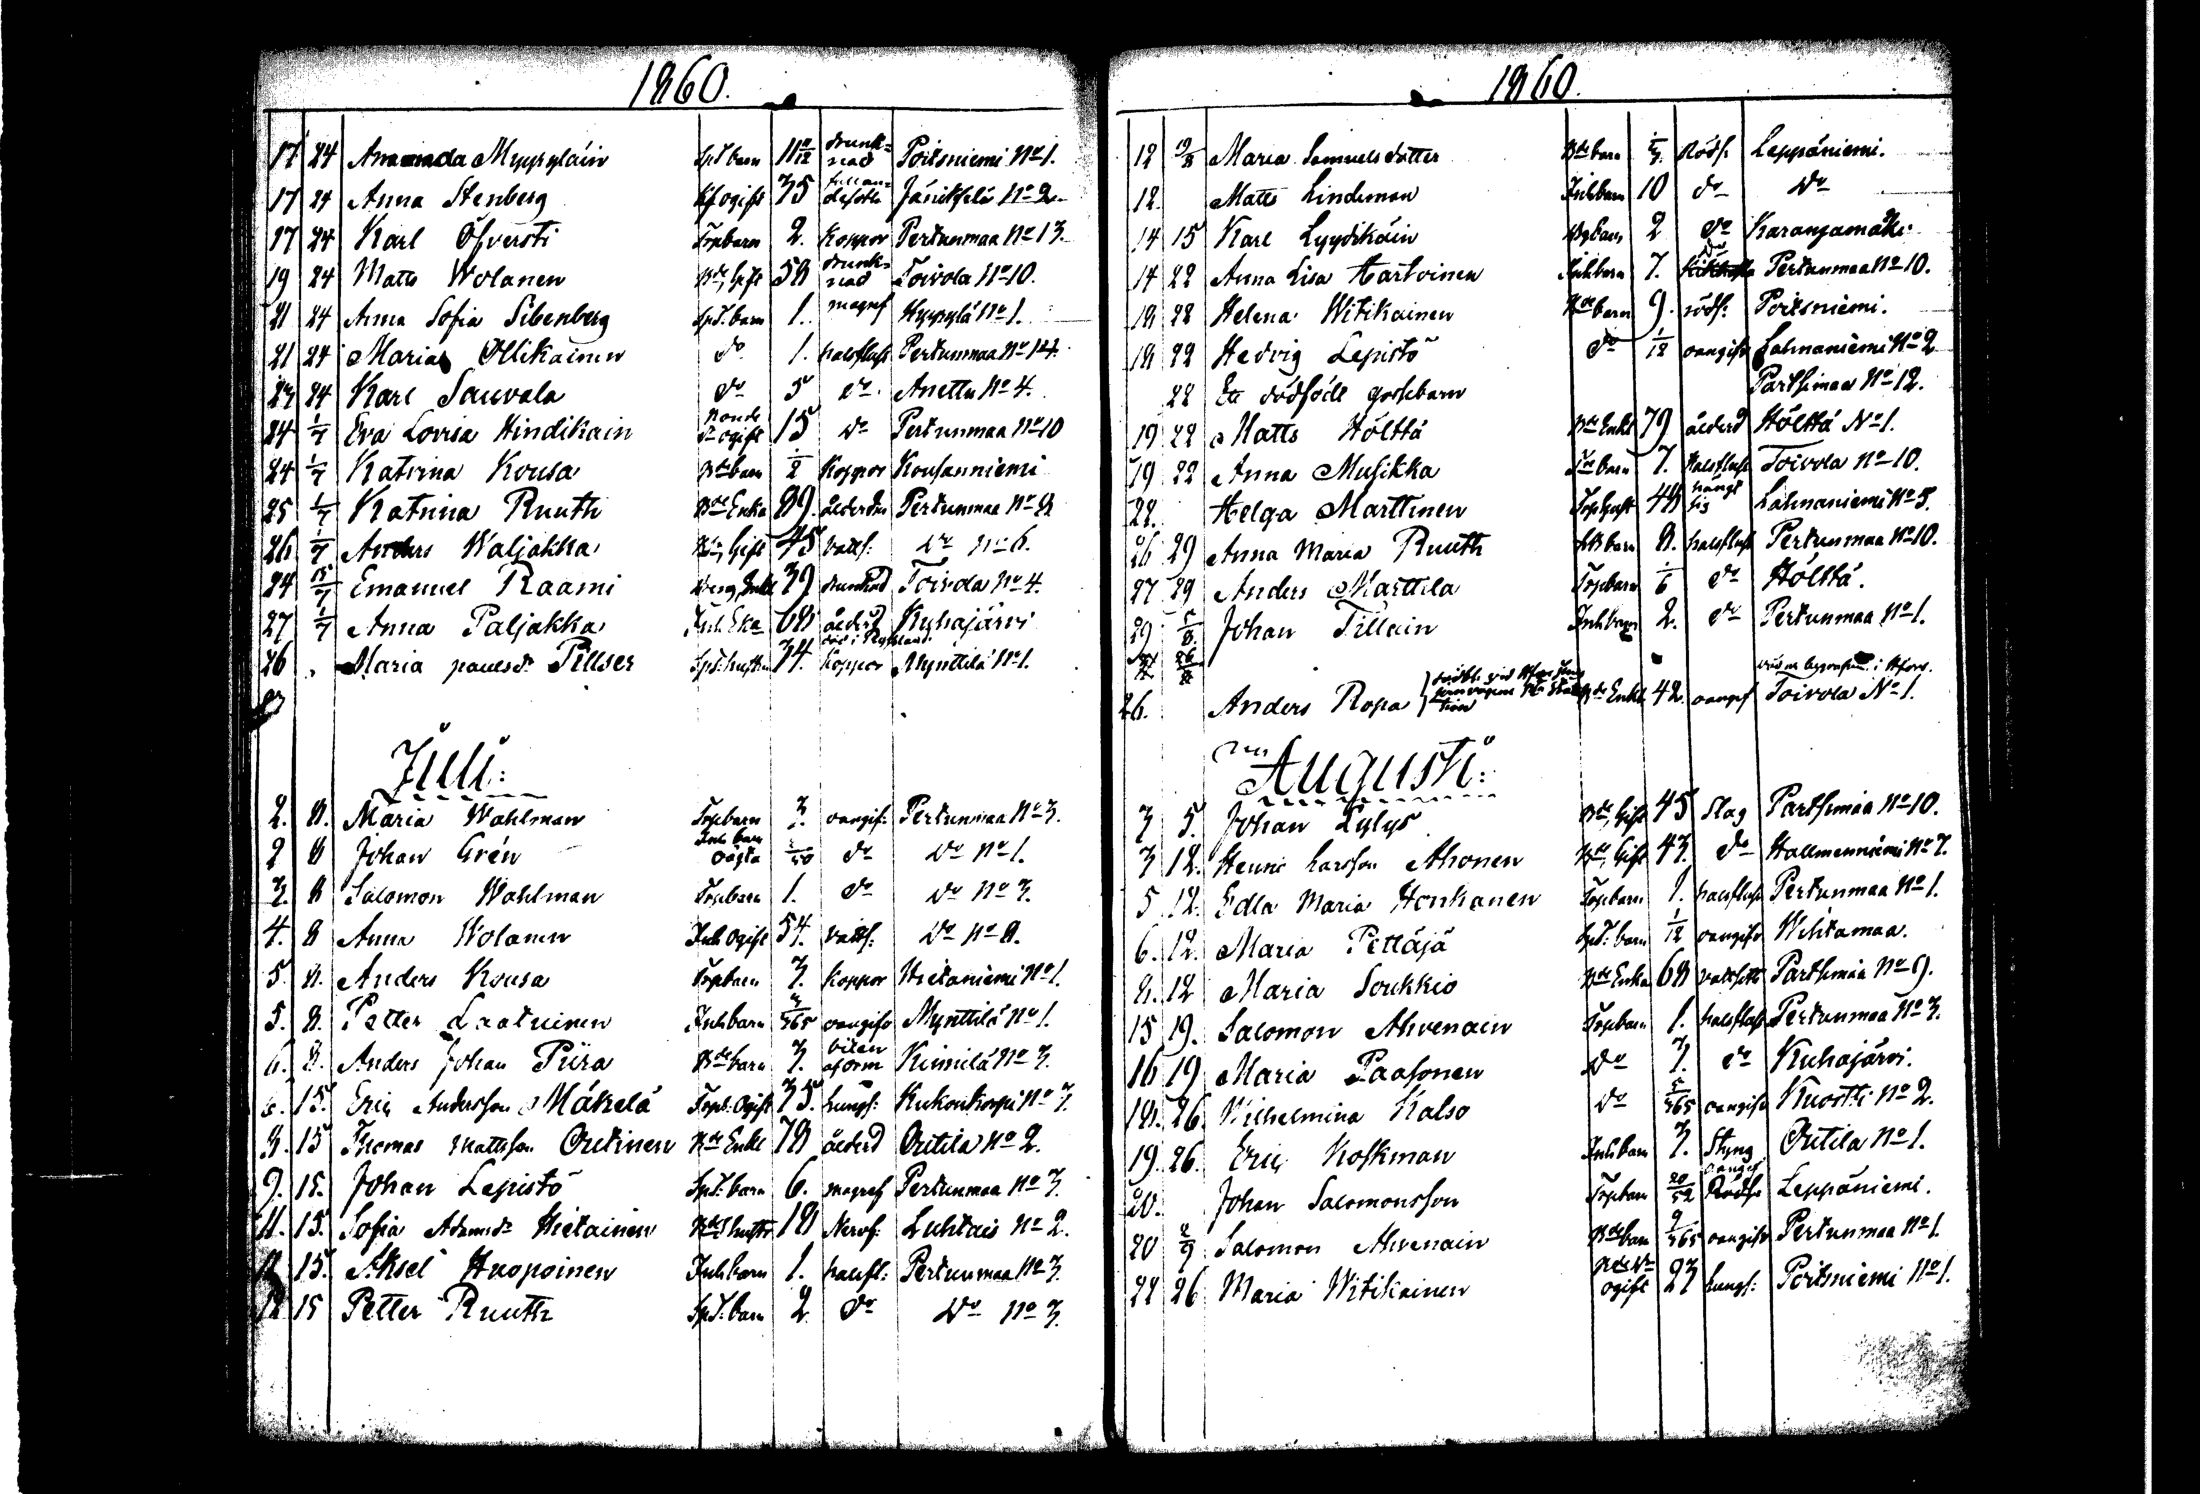 1860.
17 24 Amanda Myyryläin Sp.T. barn 11 8/12 drunknad Poitsniemi No 1.
17 24 Anna Stenberg ogift 75 Jäniskylä No 2.
17 24 Karl Öfversti Torpbarn 2. koppor Pertunmaa No 13.
19 24 Matts Wolanen Bde, Gift 58 drunknad Toivola No 10.
21 24 Anna Sofia Sibenberg Sp.T. barn 1. magref Hyyrylä No 1.
21 24 Maria Ollikainen do 1. halsfluss Pertunmaa No 14.
24 Karl Sauvala do 5 do Anettu No 4.
24 1/7 Eva Lovisa Hindikain Bonde do ogift 15 do Pertunmaa No 10
24 1/7 Katrina Kousa Bde barn 1/2 koppor Kousanniemi
25 1/7 Katrina Ruuth Bde Enka 89. Pertunmaa No 8
26 1/7 Anders Waljakka Bde, Gift 45 vatts: do No 6.
24 15/7 Emanuel Raami Dreng, Enkl 39 drunknad Toivola No 4.
27 1/7 Anna Paljakka Inh. Eka 68 ålderd Kuhajärvi
26 . Maria paulsdr Tillser Sp.T. hustru 34. koppor Mynttilä No 1.
Juli:
2. 8. Maria Wahlman Torpbarn 3. oangif: Pertunmaa No 3.
2 8 Johan Grén Inh barn oägta do do No 1.
3. 8 Salomon Wahlman Torpbarn 1. do do No 3.
4. 8 Anna Wolanen Inh Ogift 54. vatts: do No 8.
5. 8. Anders Kousa Torpbarn 3. koppor Hietaniemi No 1.
5. 8. Petter Laatuinen Inh barn 4/365 oangifv Mynttilä No 1.
6. 8. Anders Johan Piira Bde barn 3. biten af orm Kimilä No 3.
6. 15. Eric Andersson Mäkelä Torp. Ogift 75. lungs: Kukonkorpi No 7.
8. 15 Thomas Mattsson Outinen Bde Enkl 78 ålderd Outila No 2.
9. 15. Johan Lepistö Sp.T. barn 6. magref Pertunmaa No 3.
11. 15. Sofia Adamsdr Hietainen Bde hustr 18 Nervf: Luhtais No 2.
15. Aksel Huopoinen Inh barn 1. halsfl: Pertunmaa No 3.
12 15 Petter Ruuth Sp.T. barn 2 do do No 3.
1860.
12 19/8 Maria Samuelsdotter Bde barn Rödf: Leppäniemi.
12. Matts Lindeman Inh barn 10 do do
14 15 Karl Lyydikäin barn 2 do Karangamäki
14 22 Anna Lisa Tartvinen Inh barn 7. do Pertunmaa No 10.
18 22 Helena Witikainen Bde barn 9. rödf: Poitsniemi.
18 22 Hedvig Lepistö do 1/12 oangifv Lahnaniemi No 2
22 Ett dödfödt gossebarn Partsimaa No 12.
19 22 Matts Hölttä Bde Enkl 79 ålderd Hölttä No 1.
19 22 Anna Musikka barn 7. halsfluss Toivola No 10.
22. Helga Marttinen Torp Gift 48 hängt sig Lahnaniemi No 5.
26 29 Anna Maria Ruuth barn 8. halsfluss Pertunmaa No 10.
27 29 Anders Marttila Torpbarn 1/6 do Hölttä.
29 5/8. Johan Tillain Inh barn 2. do Pertunmaa No 1.
26. Anders Ropa Bde Enkl 42. oangif Toivola No 1.
Augusti:
3 5. Johan Lylys Bde, Gift 45 Slag Partsimaa No 10.
3 12. Henric Larsson Ahonen Bde, Gift 43. do Hallmenniemi No 7.
5 12. Edla Maria Honkanen Torpbarn 1. halsfluss Pertunmaa No 1.
6. 12. Maria Pettäjä Sp.T. barn 1/12 oangifv Wihtamaa.
8. 12 Maria Soukkio Bde Enka 68 vattsott Partsimaa No 9.
15 19. Salomon Ahvenain Torpbarn 1. halsfluss Pertunmaa No 3.
16 19 Maria Paasonen do 7. do Kuhajärvi.
18. 26. Wilhelmina Kalso do 5/365 oangifv Kuortti No 2.
19. 26. Eric Koskman Inh barn 7. Styng Outila No 1.
20. Johan Salomonsson Torpbarn 20/52 oangif Leppäniemi.
20 2/9 Salomon Ahvenain Bde barn 9/365 oangifv Pertunmaa No 1.
22 26 Maria Witikainen ogift 23 lungs: Poitsniemi No 1.